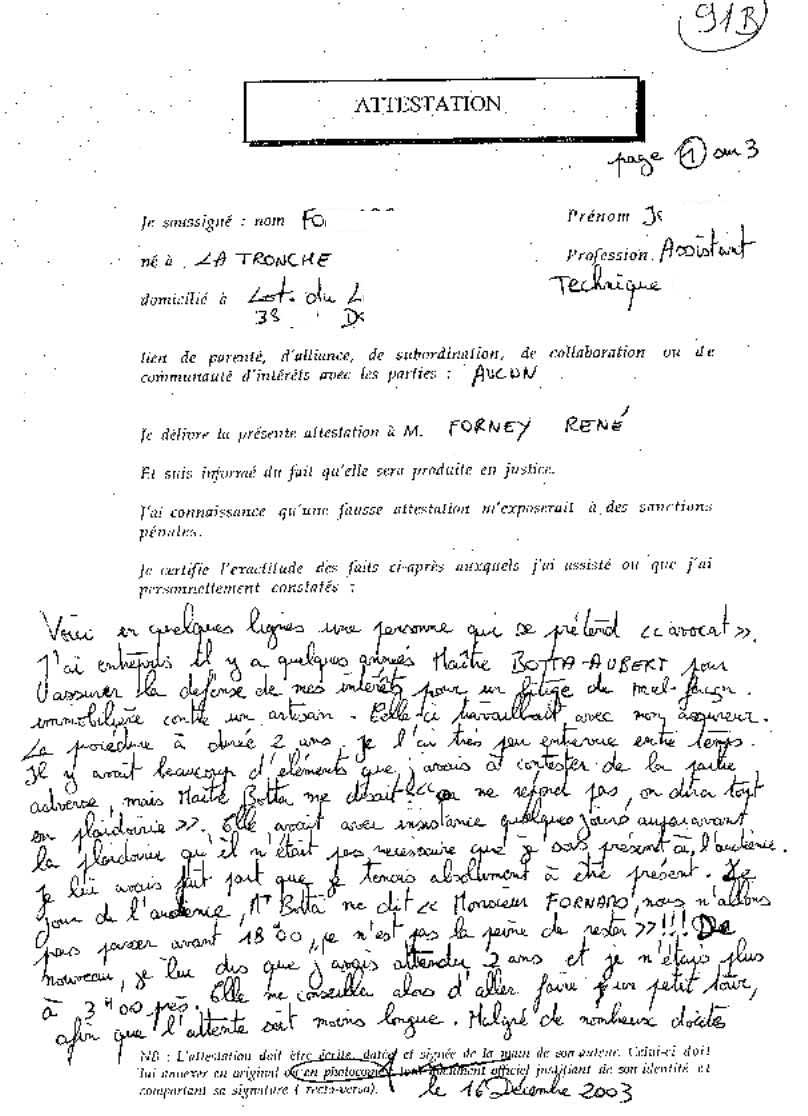 91B
ATTESTATION
page 1 sur 3
Je soussigné : nom FO
Prénom
né à LA TRONCHE
Profession. Assistant
Technique
domicilié à Lot. du L
38
lien de parenté, d'alliance, de subordination, de collaboration ou de
communauté d'intérêts avec les parties : AUCUN
Je délivre la présente attestation à M. FORNEY RENÉ
Et suis informé du fait qu'elle sera produite en justice.
J'ai connaissance qu'une fausse attestation m'exposerait à des sanctions
pénales.
Je certifie l'exactitude des faits ci-après auxquels j'ai assisté ou que j'ai
personnellement constatés :
Voici en quelques lignes une personne qui se prétend << avocat >>.
J'ai entrepris il y a quelques années Maître BOTTA-AUBERT pour
assurer la défense de mes intérêts pour un litige de mal-façon
immobilière contre un artisan. Celle-ci travaillait avec mon assureur.
La procédure à durée 2 ans, je l'ai très peu entrevue entre temps.
Il y avait beaucoup d'éléments que j'avais à contester de la partie
adverse, mais Maître Botta me disait << on ne répond pas, on dira tout
en plaidoirie >>. Elle avait avec insistance quelques jours auparavant
la plaidoirie qu'il n'était pas nécessaire que je sois présent à l'audience.
je lui avais fait part que je tenais absolument à être présent. Le
jour de l'audience, Me Botta me dit << Monsieur FORNARO, nous n'allons
pas passer avant 18H00, ce n'est pas la peine de rester >>!!! De
nouveau, je lui dis que j'avais attendu 2 ans et je n'étais plus
à 3H00 près. Elle me conseilla alors d'aller faire un petit tour,
afin que l'attente soit moins longue. Malgré de nombreux
NB : L'attestation doit être écrite, datée et signée de la main de son auteur. Celui-ci doit
lui annexer en original ou en photocopie tout document officiel justifiant de son identité et
comportant sa signature ( recto-verso).
le 16 Décembre 2003